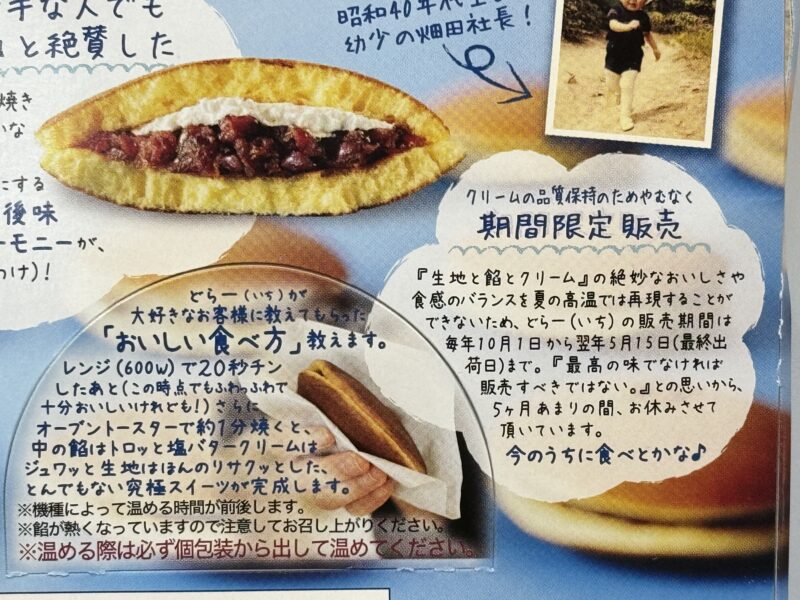 手な人でも
と絶賛した
焼き
にする
後味
ーモニーが、
わけ)!
幼少の畑田社長!
クリームの品質保持のためやむなく
期間限定販売
『生地と餡とクリーム』の絶妙なおいしさや
食感のバランスを夏の高温では再現することが
できないため、どらー(いち)の販売期間は
毎年10月1日から翌年5月15日(最終出
荷日)まで。『最高の味でなければ
販売すべきではない。』との思いから、
5ヶ月あまりの間、お休みさせて
頂いています。
今のうちに食べとかな♪
どらー(いち)が
大好きなお客様に教えてもらった
「おいしい食べ方」教えます。
レンジ(600w)で20秒チン
したあと(この時点でもふわっふわで
十分おいしいけれども!)さらに
オーブントースターで約1分焼くと、
中の餡はトロッと塩バタークリームは
ジュワッと生地はほんのりサクッとした、
とんでもない究極スイーツが完成します。
※機種によって温める時間が前後します。
※餡が熱くなっていますので注意してお召し上がりください。
※温める際は必ず個包装から出して温めてください。